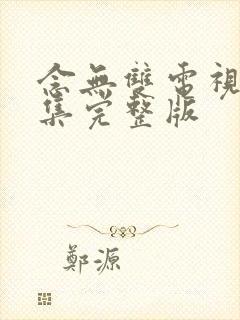 念無雙電視
集完整版
鄭源